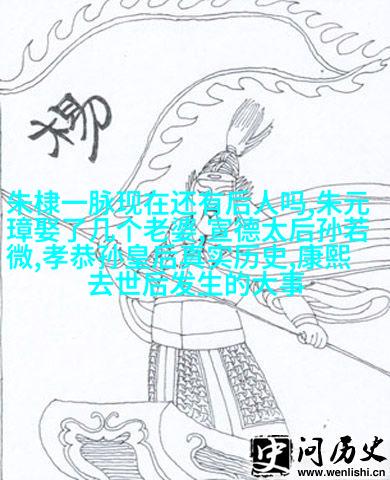 杨
朱棣一脉现在还有后人吗,朱元
璋娶了几个老婆,宣德太后孙若
微,孝恭孙皇后真实历史,康熙
去世后发生的大事
史问历史
www.wenlishi.cn